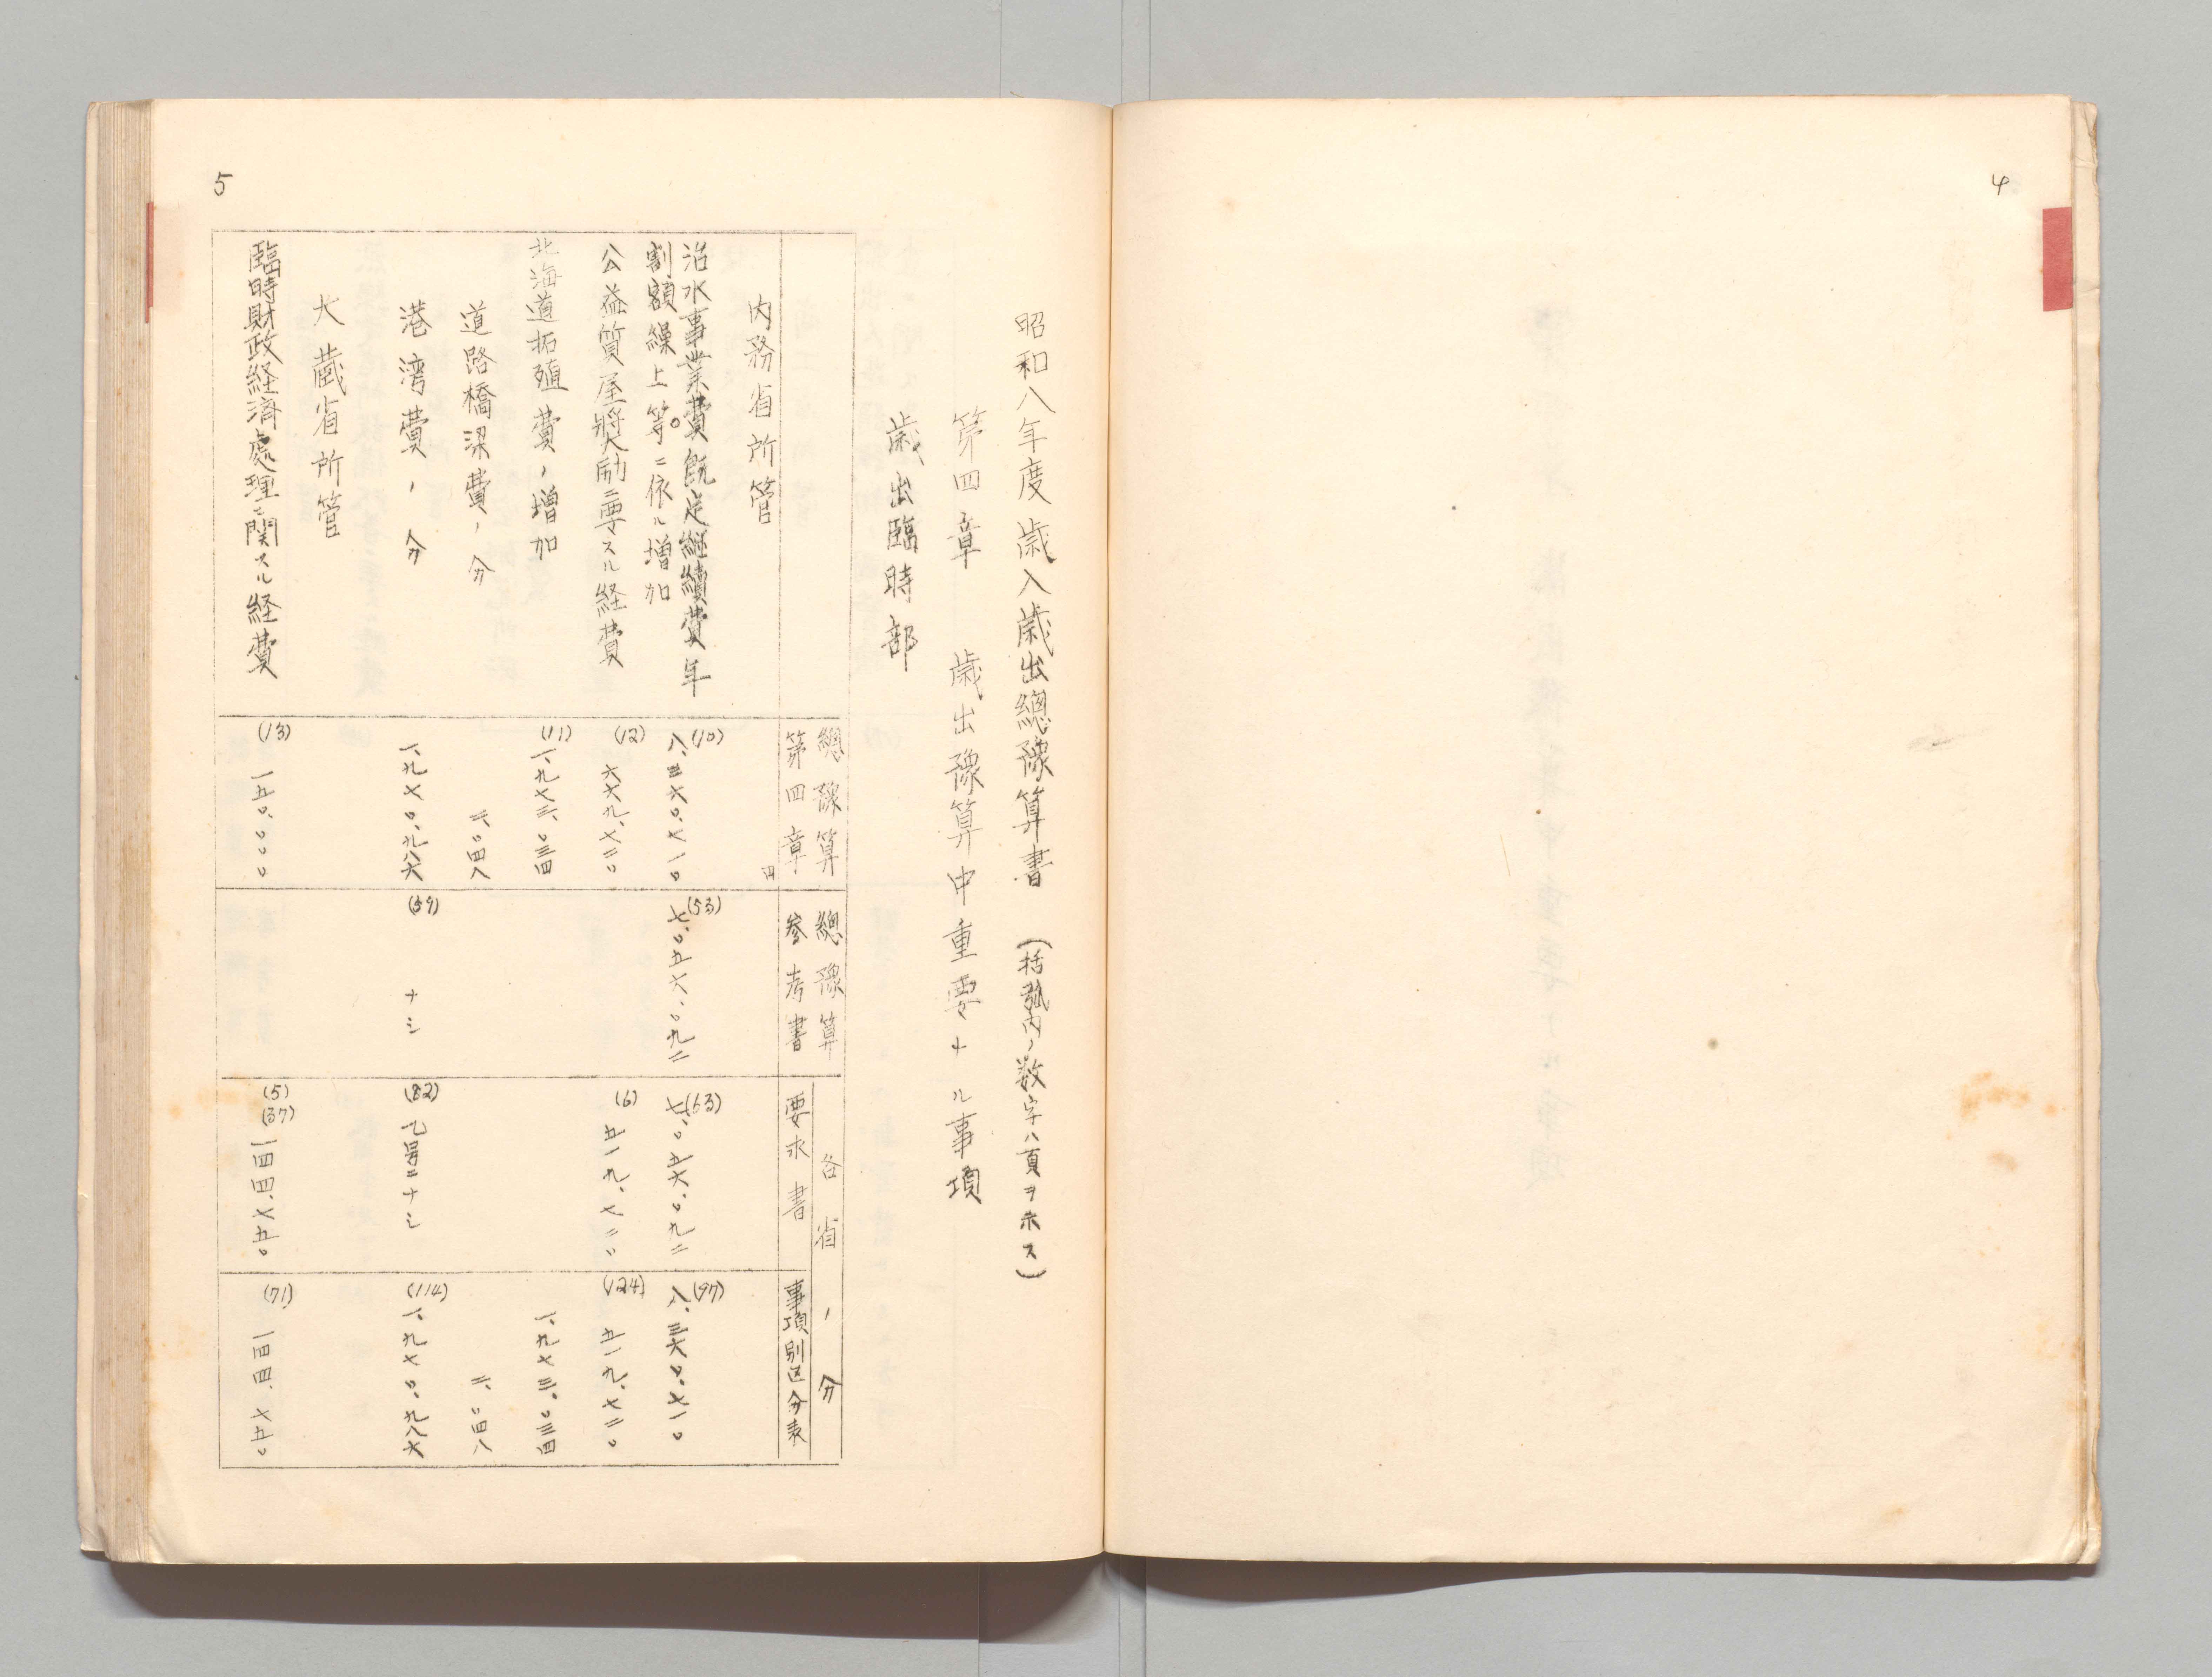 4
5
昭和八年度歳入歳出總豫算書（括弧内ノ数字ハ頁ヲ示ス）
第四章 歳出豫算中重要ナル事項
歳出臨時部
總豫算
第四章
總豫算
参考書
各省ノ分
要求書
事項別区分表
内務省所管
円
治水事業費既定継續費年
割額繰上等ニ依ル増加
(10) 八、三六〇、七一〇
(53) 七、〇五六、〇九二
(63) 七、〇五六、〇九二
(97) 八、三六〇、七一〇
公益質屋奨励ニ要スル経費
(12) 六六九、七二〇
(6) 五一九、七二〇
(124) 五一九、七二〇
北海道拓殖費ノ増加
(11) 一、九七三、〇三四
一、九七三、〇三四
道路橋梁費ノ分
二、〇四八
二、〇四八
港湾費ノ分
一、九七〇、九八六
(59) ナシ
(82) 乙号ニナシ
(114) 一、九七〇、九八六
大蔵省所管
臨時財政経済處理ニ関スル経費
(13) 一五〇、〇〇〇
(5)
(37) 一四四、七五〇
(71) 一四四、七五〇